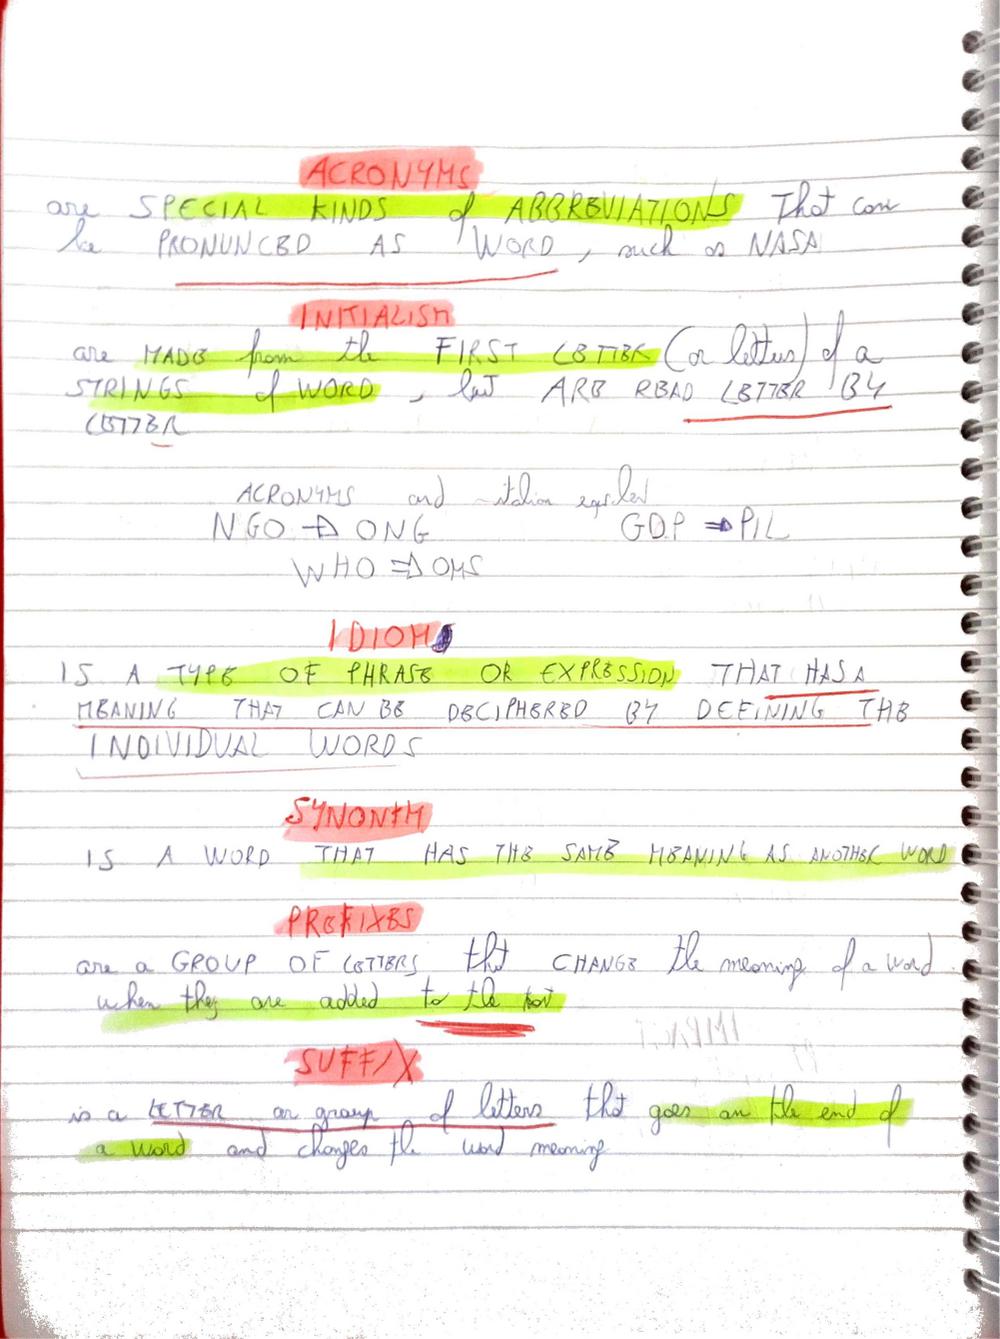 ACRONYMS
are SPECIAL KINDS of ABBREVIATIONS That can
be PRONUNCED AS WORD, such as NASA
INITIALISM
are MADE from the FIRST LETTER (or letters) of a
STRINGS of WORD, but ARE READ LETTER BY
LETTER
ACRONYMS and italian
NGO ⇒ ONG GDP ⇒ PIL
WHO ⇒ OMS
IDIOM
IS A TYPE OF PHRASE OR EXPRESSION THAT HAS A
MEANING THAT CAN BE DECIPHERED BY DEFINING THE
INDIVIDUAL WORDS
SYNONYM
IS A WORD THAT HAS THE SAME MEANING AS ANOTHER WORD
PREFIXES
are a GROUP OF LETTERS that CHANGE the meaning of a word
when they are added to the root
SUFFIX
is a LETTER or group of letters that goes on the end of
a word and changes the word meaning